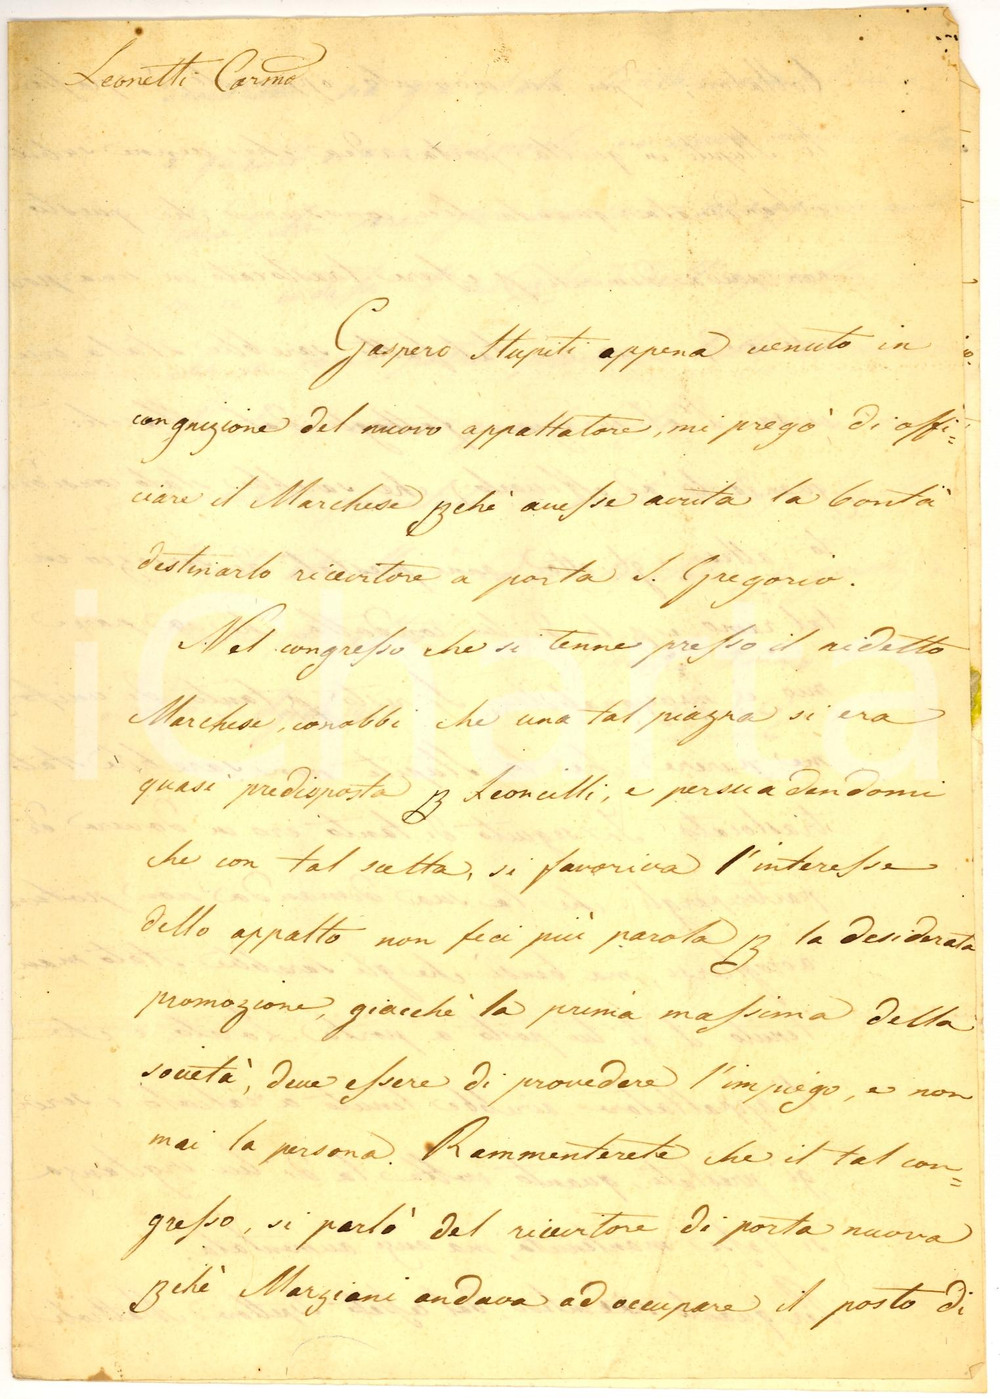 Leonetti Carmo
Gaspero Stupiti appena venuto in
congnizione del nuovo appaltatore, mi pregò di offi=
ciare il Marchese pchè avesse avuta la bontà
destinarlo ricevitore a porta S. Gregorio.
Nel congresso che si tenne presso il ridetto
Marchese, conobbi che una tal piazza si era
quasi predisposta p Leoncilli, e persuadendomi
che con tal scelta, si favoriva l'interesse
dello appalto non feci più parola p la desiderata
promozione, giacchè la prima massima della
società, deve essere di provedere l'impiego, e non
mai la persona. Rammenterete che il tal con=
gresso, si parlò del ricevitore di porta nuova
pchè Marziani andava ad occupare il posto di
iCharta